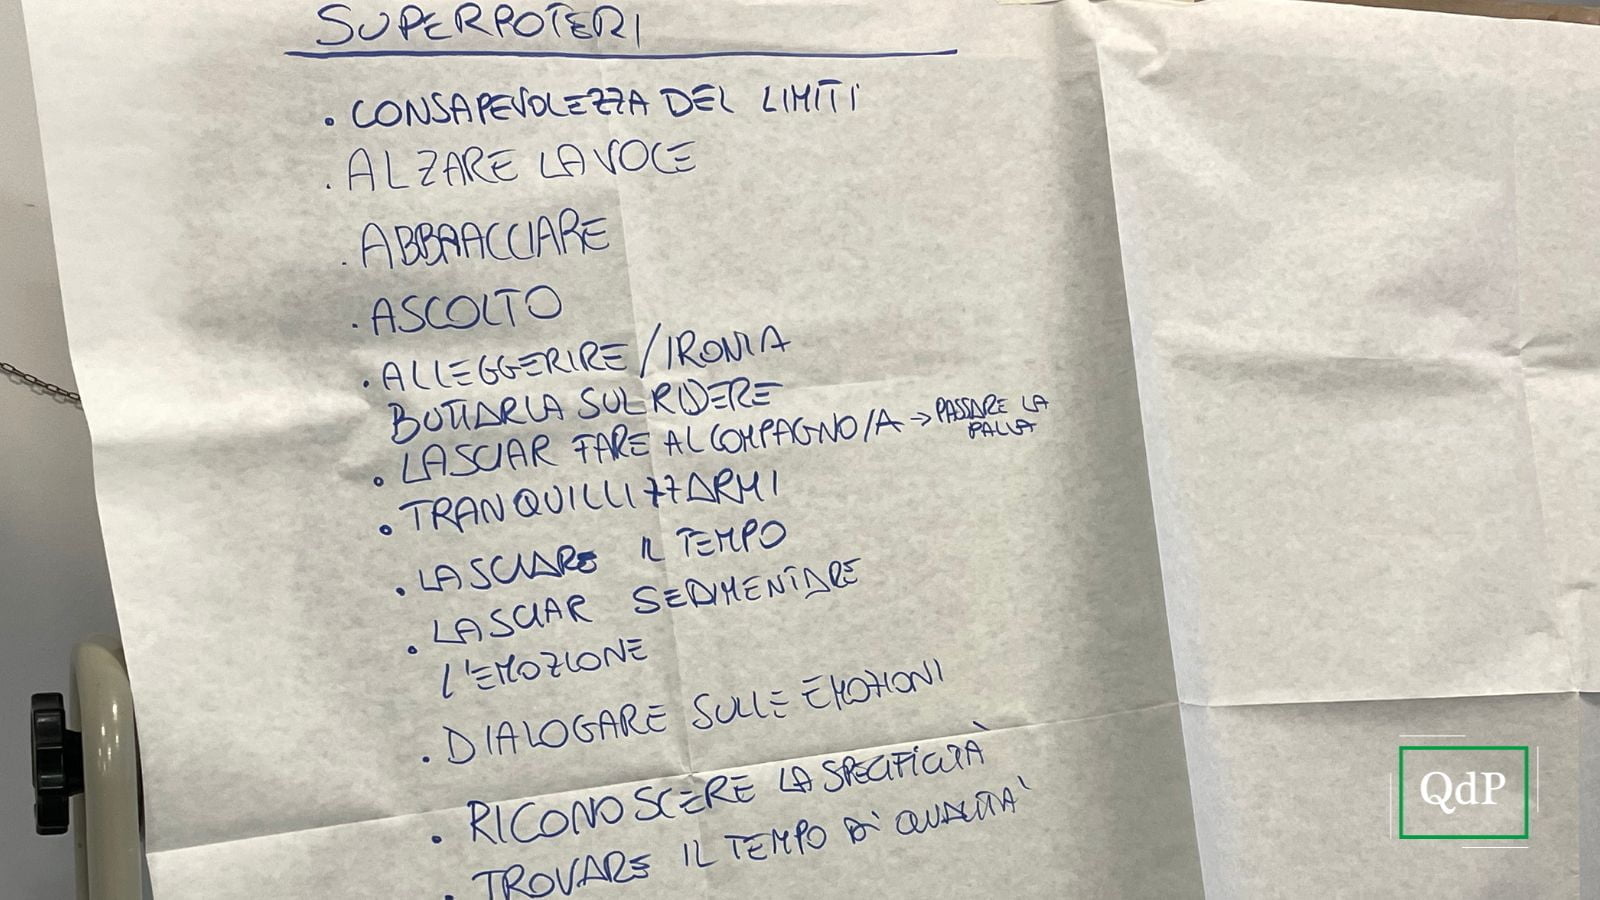 SUPERPOTERI
• CONSAPEVOLEZZA DEL LIMITI
. ALZARE LA VOCE
. ABBRAACCIARE
. ASCOLTO
. ALLEGGERIRE / IRONIA
BUTTARLA SUL RIDERE
• LASCIAR FARE AL COMPAGNO/A → PASSARE LA
PALLA
• TRANQUILLIZZARMI
• LASCIARE IL TEMPO
• LASCIAR SEDIMENTARE
L'EMOZIONE
• DIALOGARE SULLE EMOZIONI
• RICONOSCERE LA SPECIFICITÀ
• TROVARE IL TEMPO DI QUALITA'
QdP